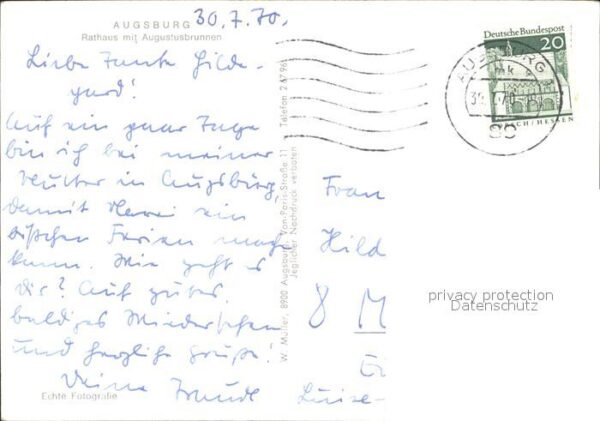 AUGSBURG
30.7.70.
Rathaus mit Augustusbrunnen
Liebe Tante Hilde-
gard!
Auf ein paar Tage
bin ich bei meiner
Mutter in Augsburg,
damit ein
bißchen Ferien
kann. Wie geht es
Dir? Auf gutes,
baldiges Wiedersehen
und herzliche Grüße!
Deine
Luise-
Echte Fotografie
W. Müller, 8900 Augsburg, Von-Paris-Straße 11 Telefon 2 67 96
Jeglicher Nachdruck verboten
Deutsche Bundespost
20
LORSCH/HESSEN
Frau
Hild
8 M
privacy protection
Datenschutz